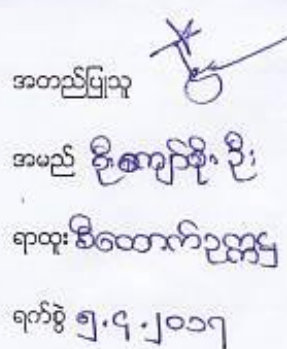 အတည်ပြုသူ
အမည် ဦးကျော်စိုးဦး
ရာထူး စီထောက်ဥက္ကဋ္ဌ
ရက်စွဲ ၅.၄.၂၀၁၇